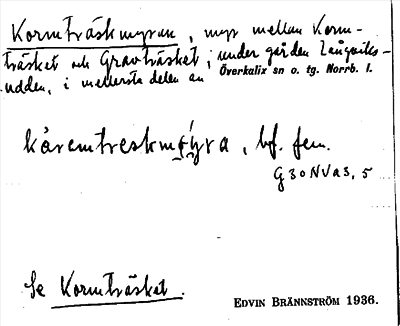 Kormträskmyran, myr mellan Korm-
träsket och Gravträsket; under gården Långviks-
udden, i mellersta delen av Överkalix sn o. tg. Norrb. l.
kåremtreskmyra, bf. fem.
G 30 NV a3, 5
Se Kormträsket.
EDVIN BRÄNNSTRÖM 1936.